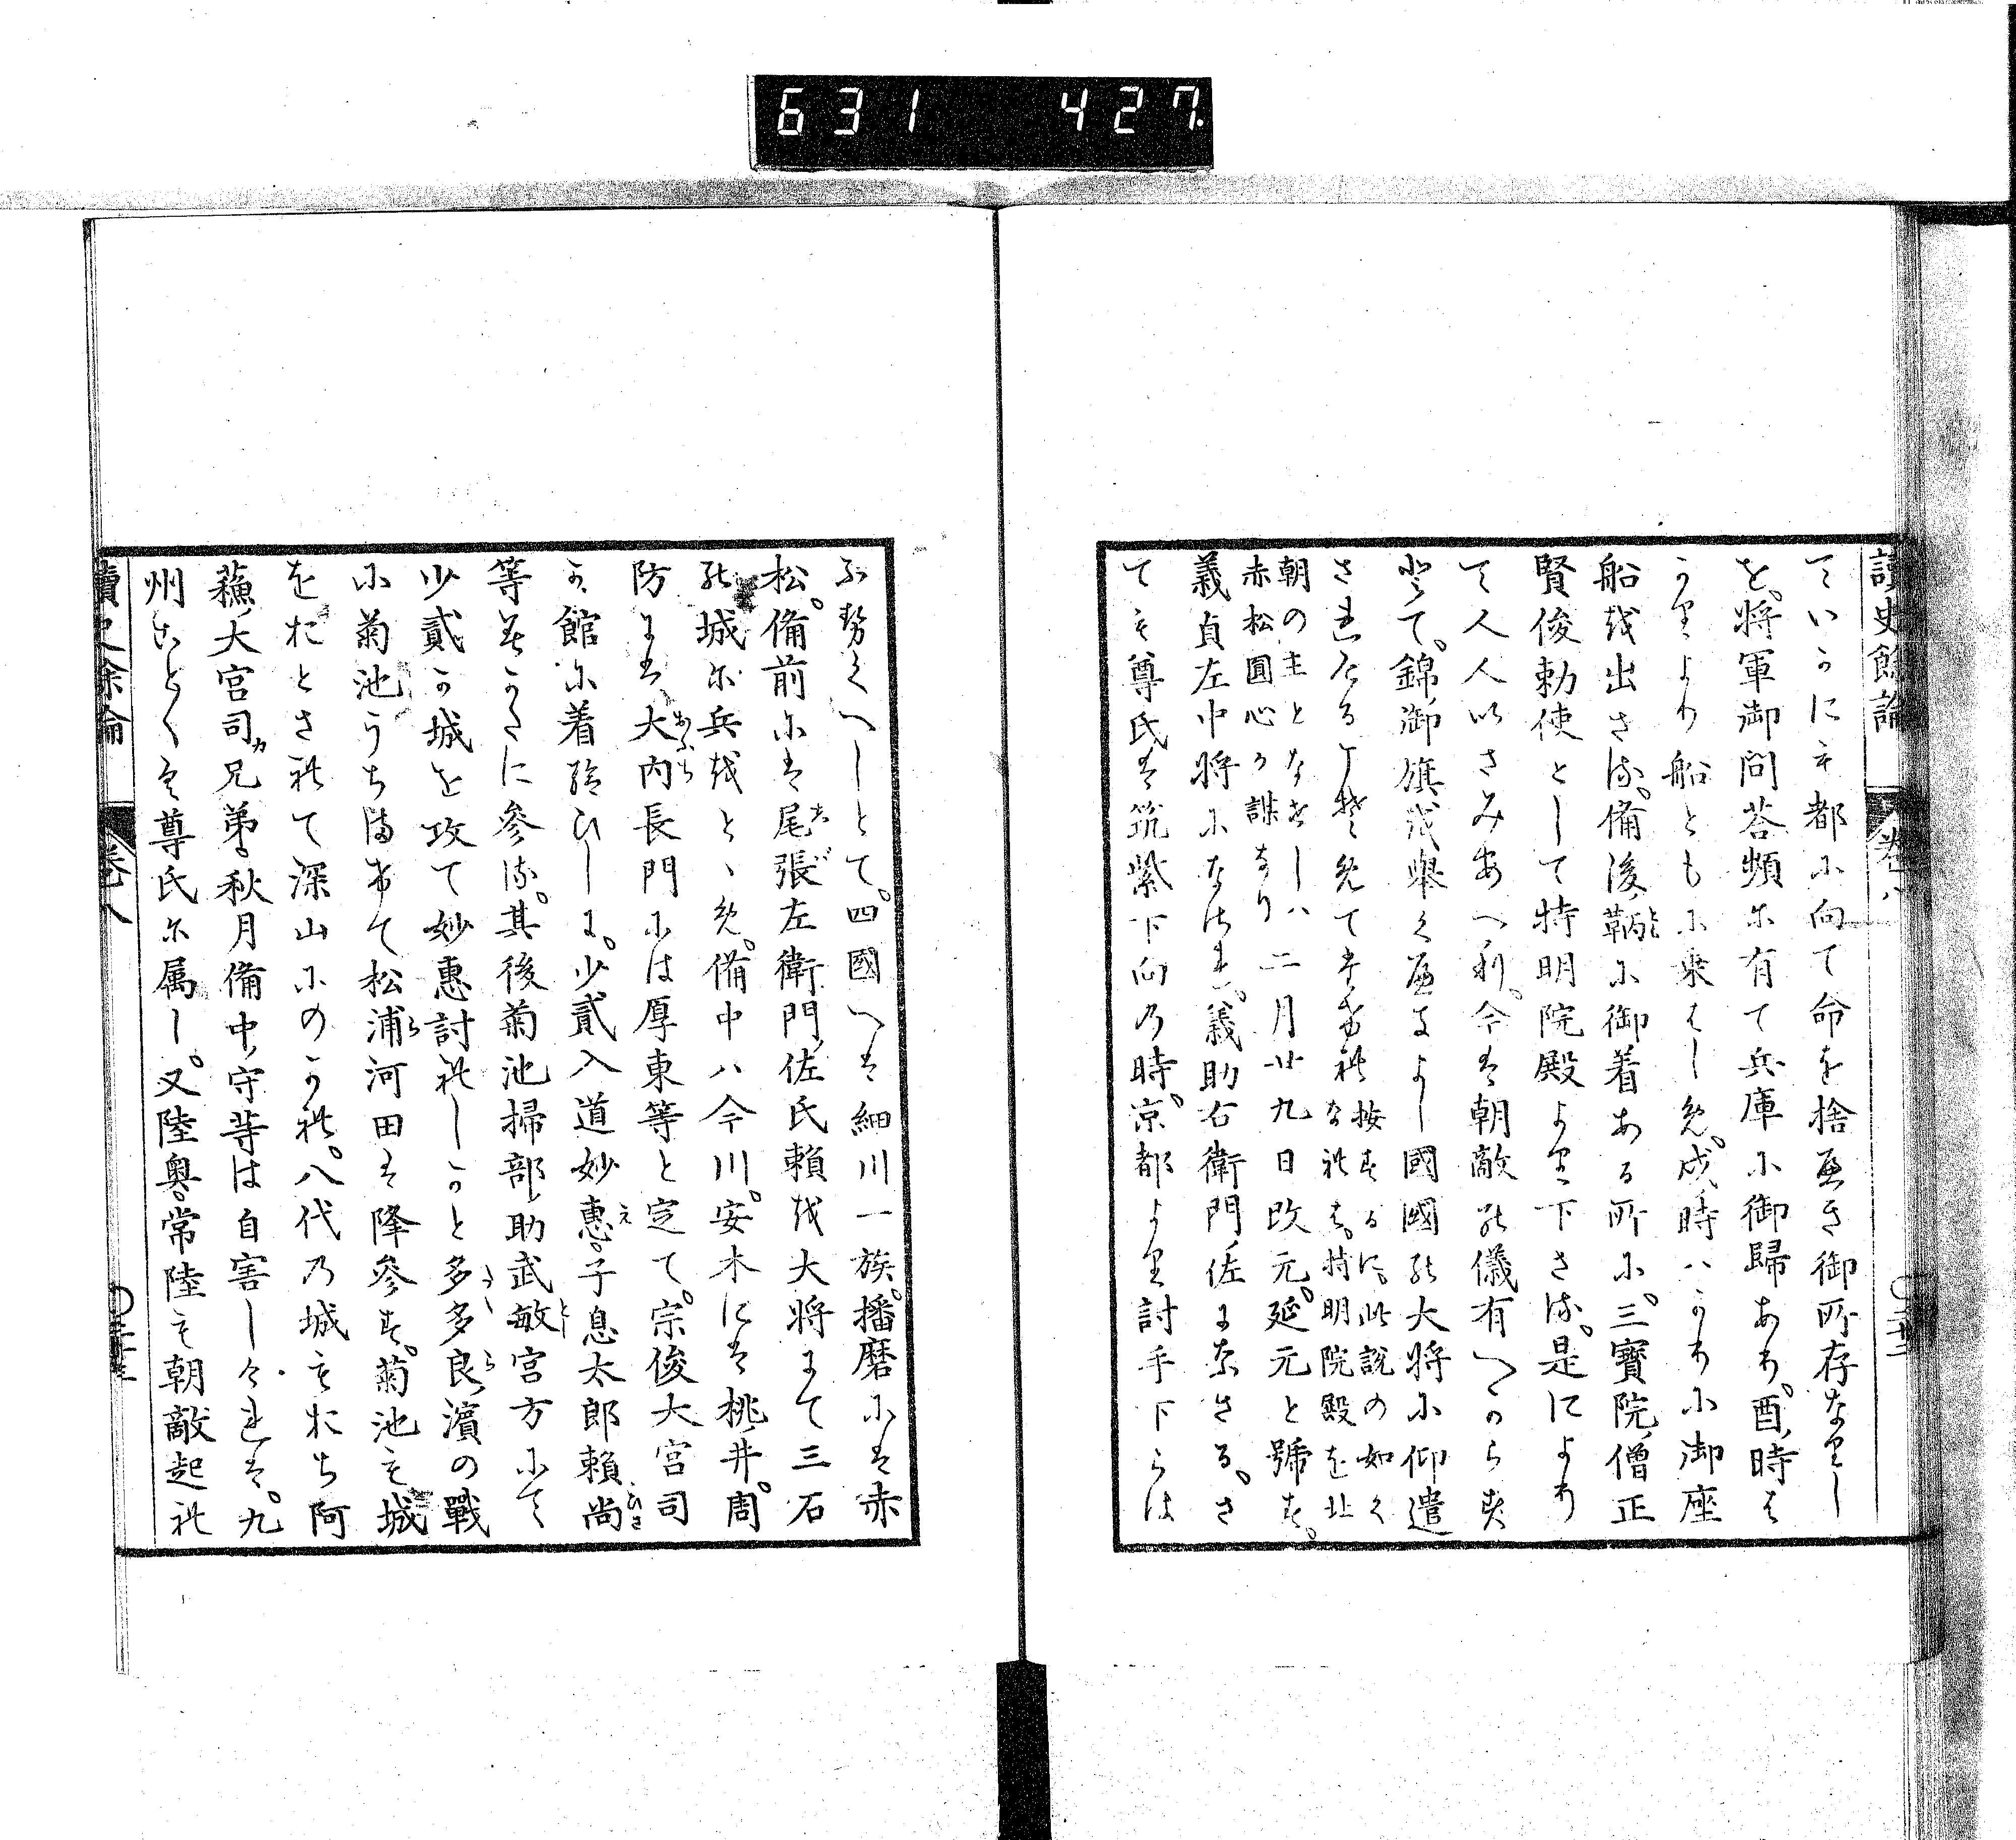 631 427
讀史餘論 卷八
ていかにも都に向て命を捨べき御所存なりし
を。将軍御問荅頻に有て兵庫に御歸あり。酉ノ時は
かりより船ともに乗はしめ。戌ノ時ハかりに御座
船を出さる。備後ノ鞆に御着ある所に。三寳院ノ僧正
賢俊勅使として持明院殿より下さる。是により
て人人いさみあへり。今は朝敵の儀有へからす
とて。錦ノ御旗を舉くへきよし國國の大将に仰遣
されける
按するに。此説の如く
なれは。持明院殿を北
朝の主となせしハ
赤松圓心か謀なり
二月廿九日改元。延元と號す。
義貞左中将になされ。義助右衛門ノ佐になさる。さ
ても尊氏は筑紫下向の時。京都より討手下らは
ふせくへしとて。四國へは細川一族。播磨には赤
松。備前には尾張左衛門ノ佐氏賴を大将にて三石
の城に兵をとゝめ。備中ハ今川。安木には桃ノ井。周
防には大内長門には厚東等と定て。宗俊大宮司
か館に着給ひしに。少貳入道妙惠。子息太郎賴尚
等はかたに參る。其後菊池掃部ノ助武敏宮方にて
少貳か城を攻て妙惠討れしかと多多良ノ濱の戰
に菊池うち満けて松浦河田は降參す。菊池も城
をおとされて深山にのかれ。八代の城もおち阿
蘓ノ大宮司カ兄弟。秋月備中ノ守䓁は自害しけれは。九
州ことく尊氏に属し。又陸奥。常陸も朝敵起れ
讀史餘論 卷八